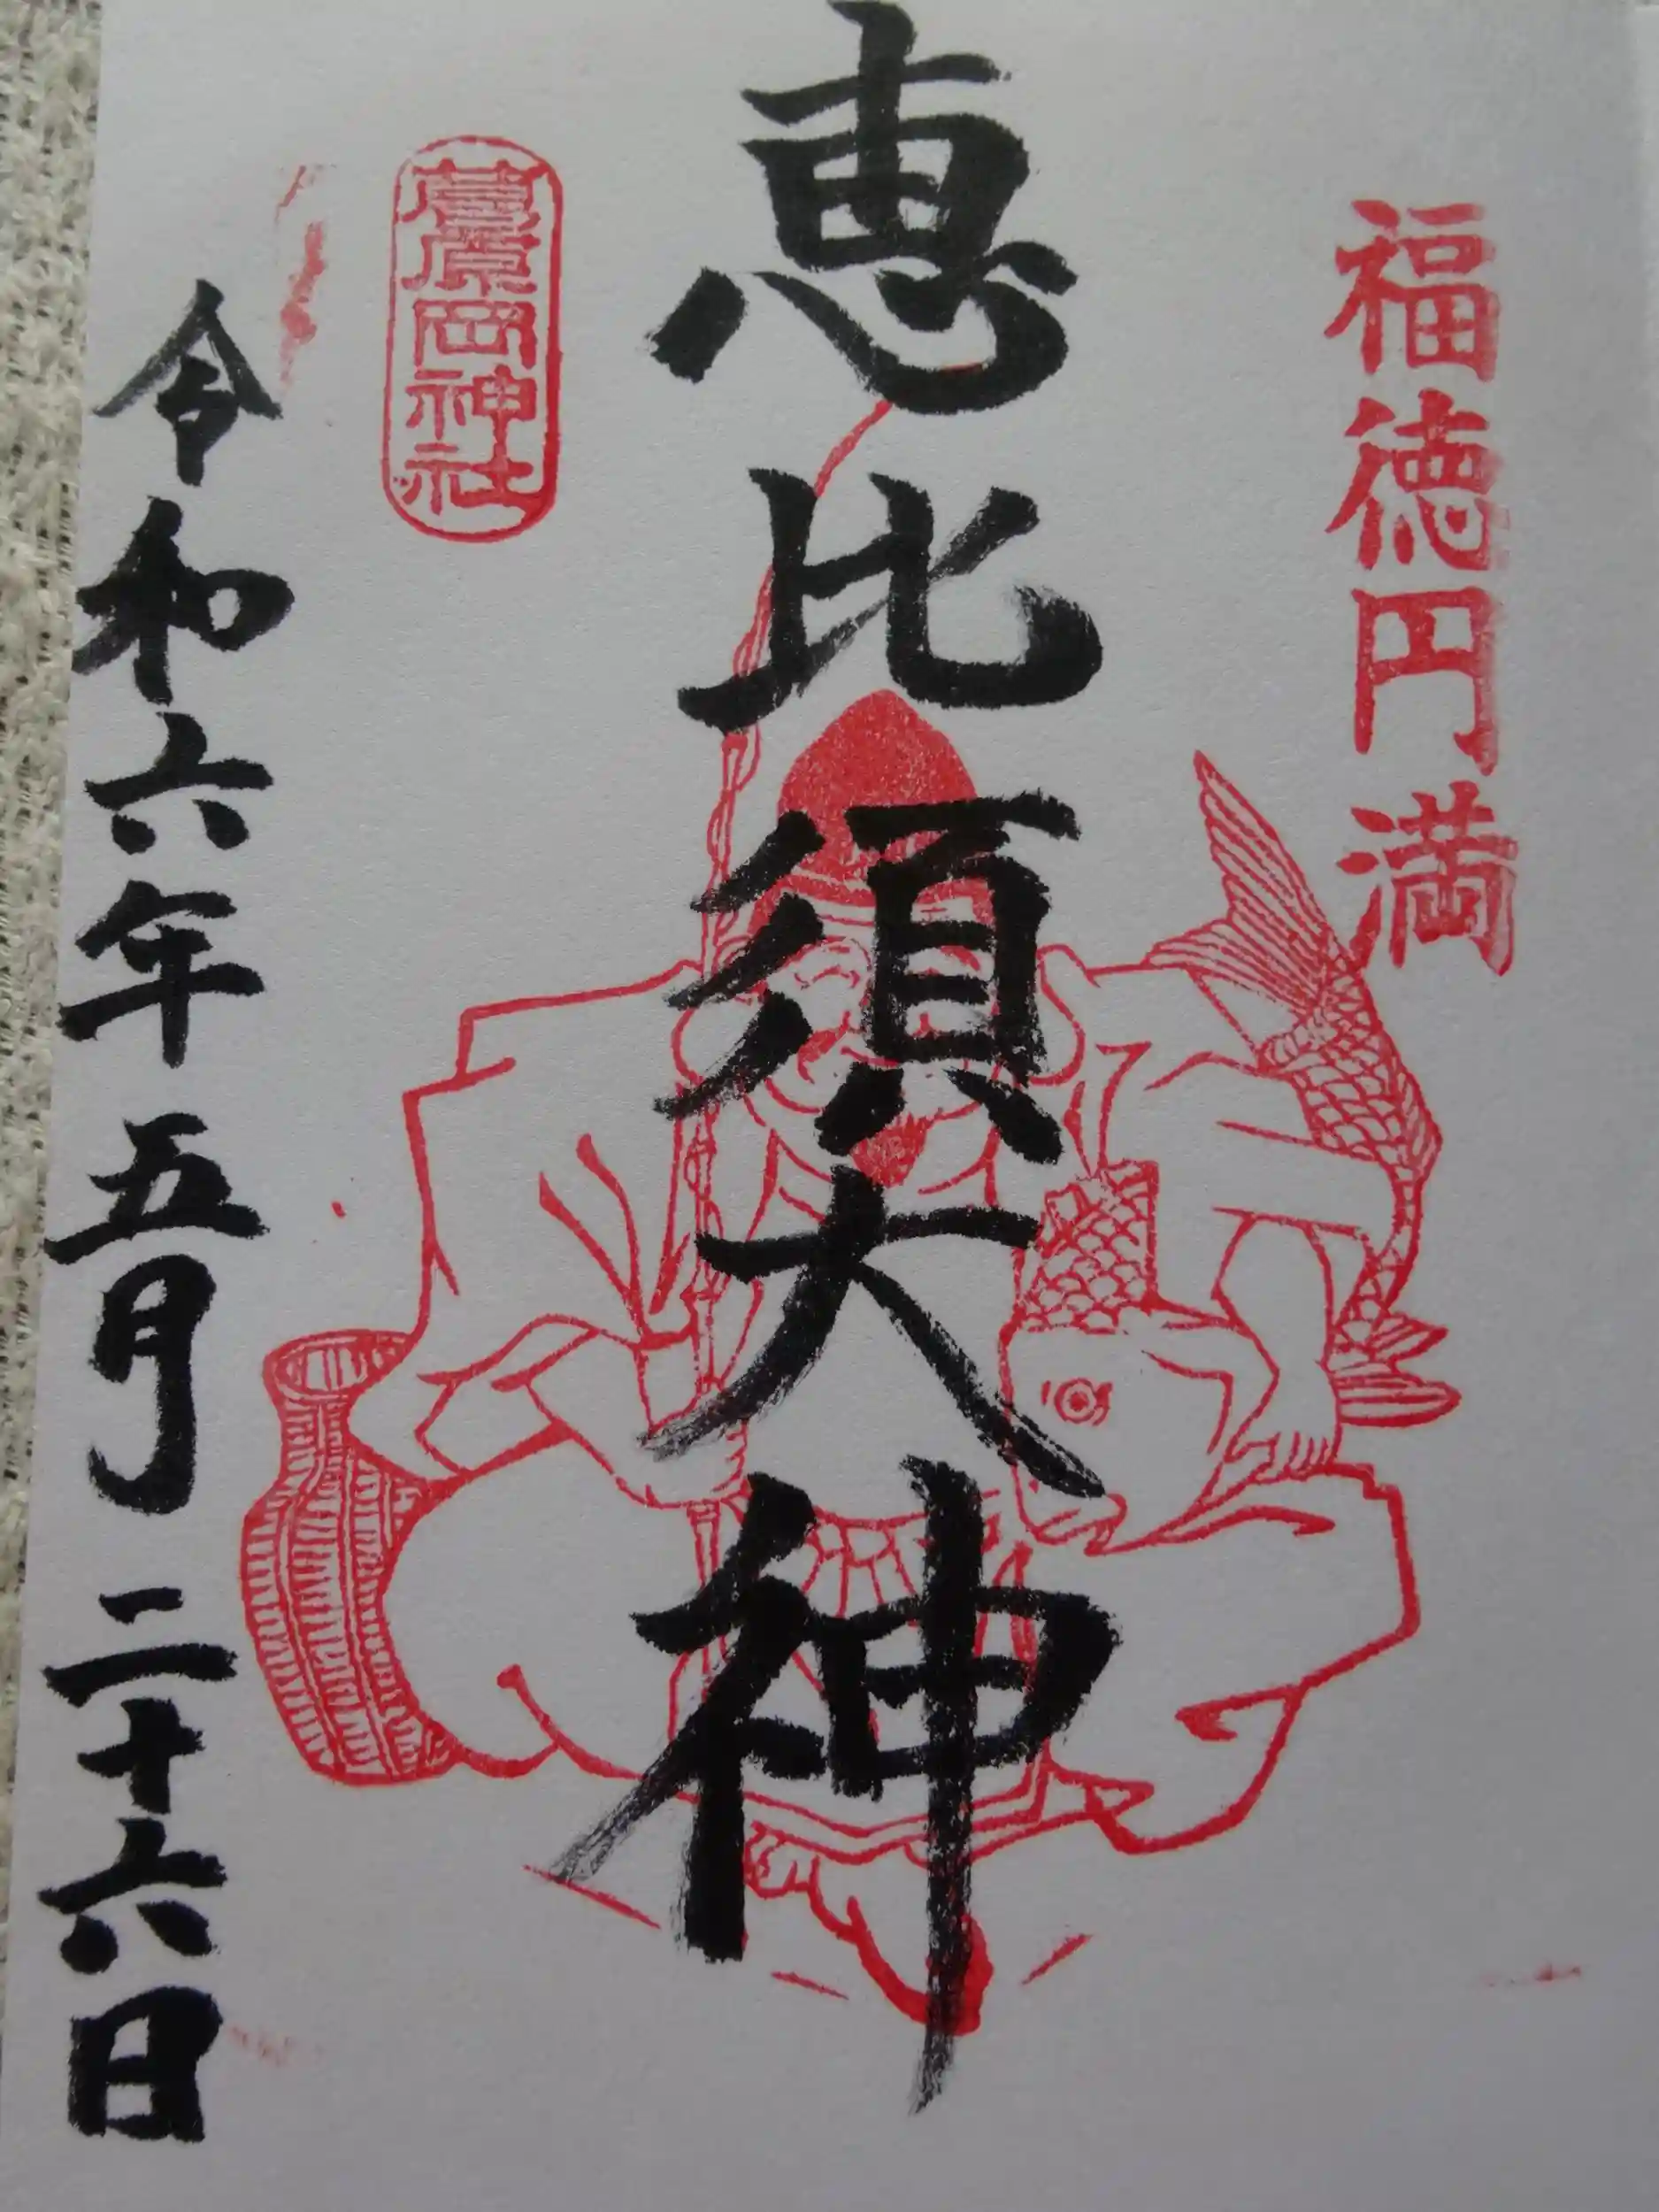 福徳円満
恵比須大神
葭原岡神社
令和六年五月二十六日